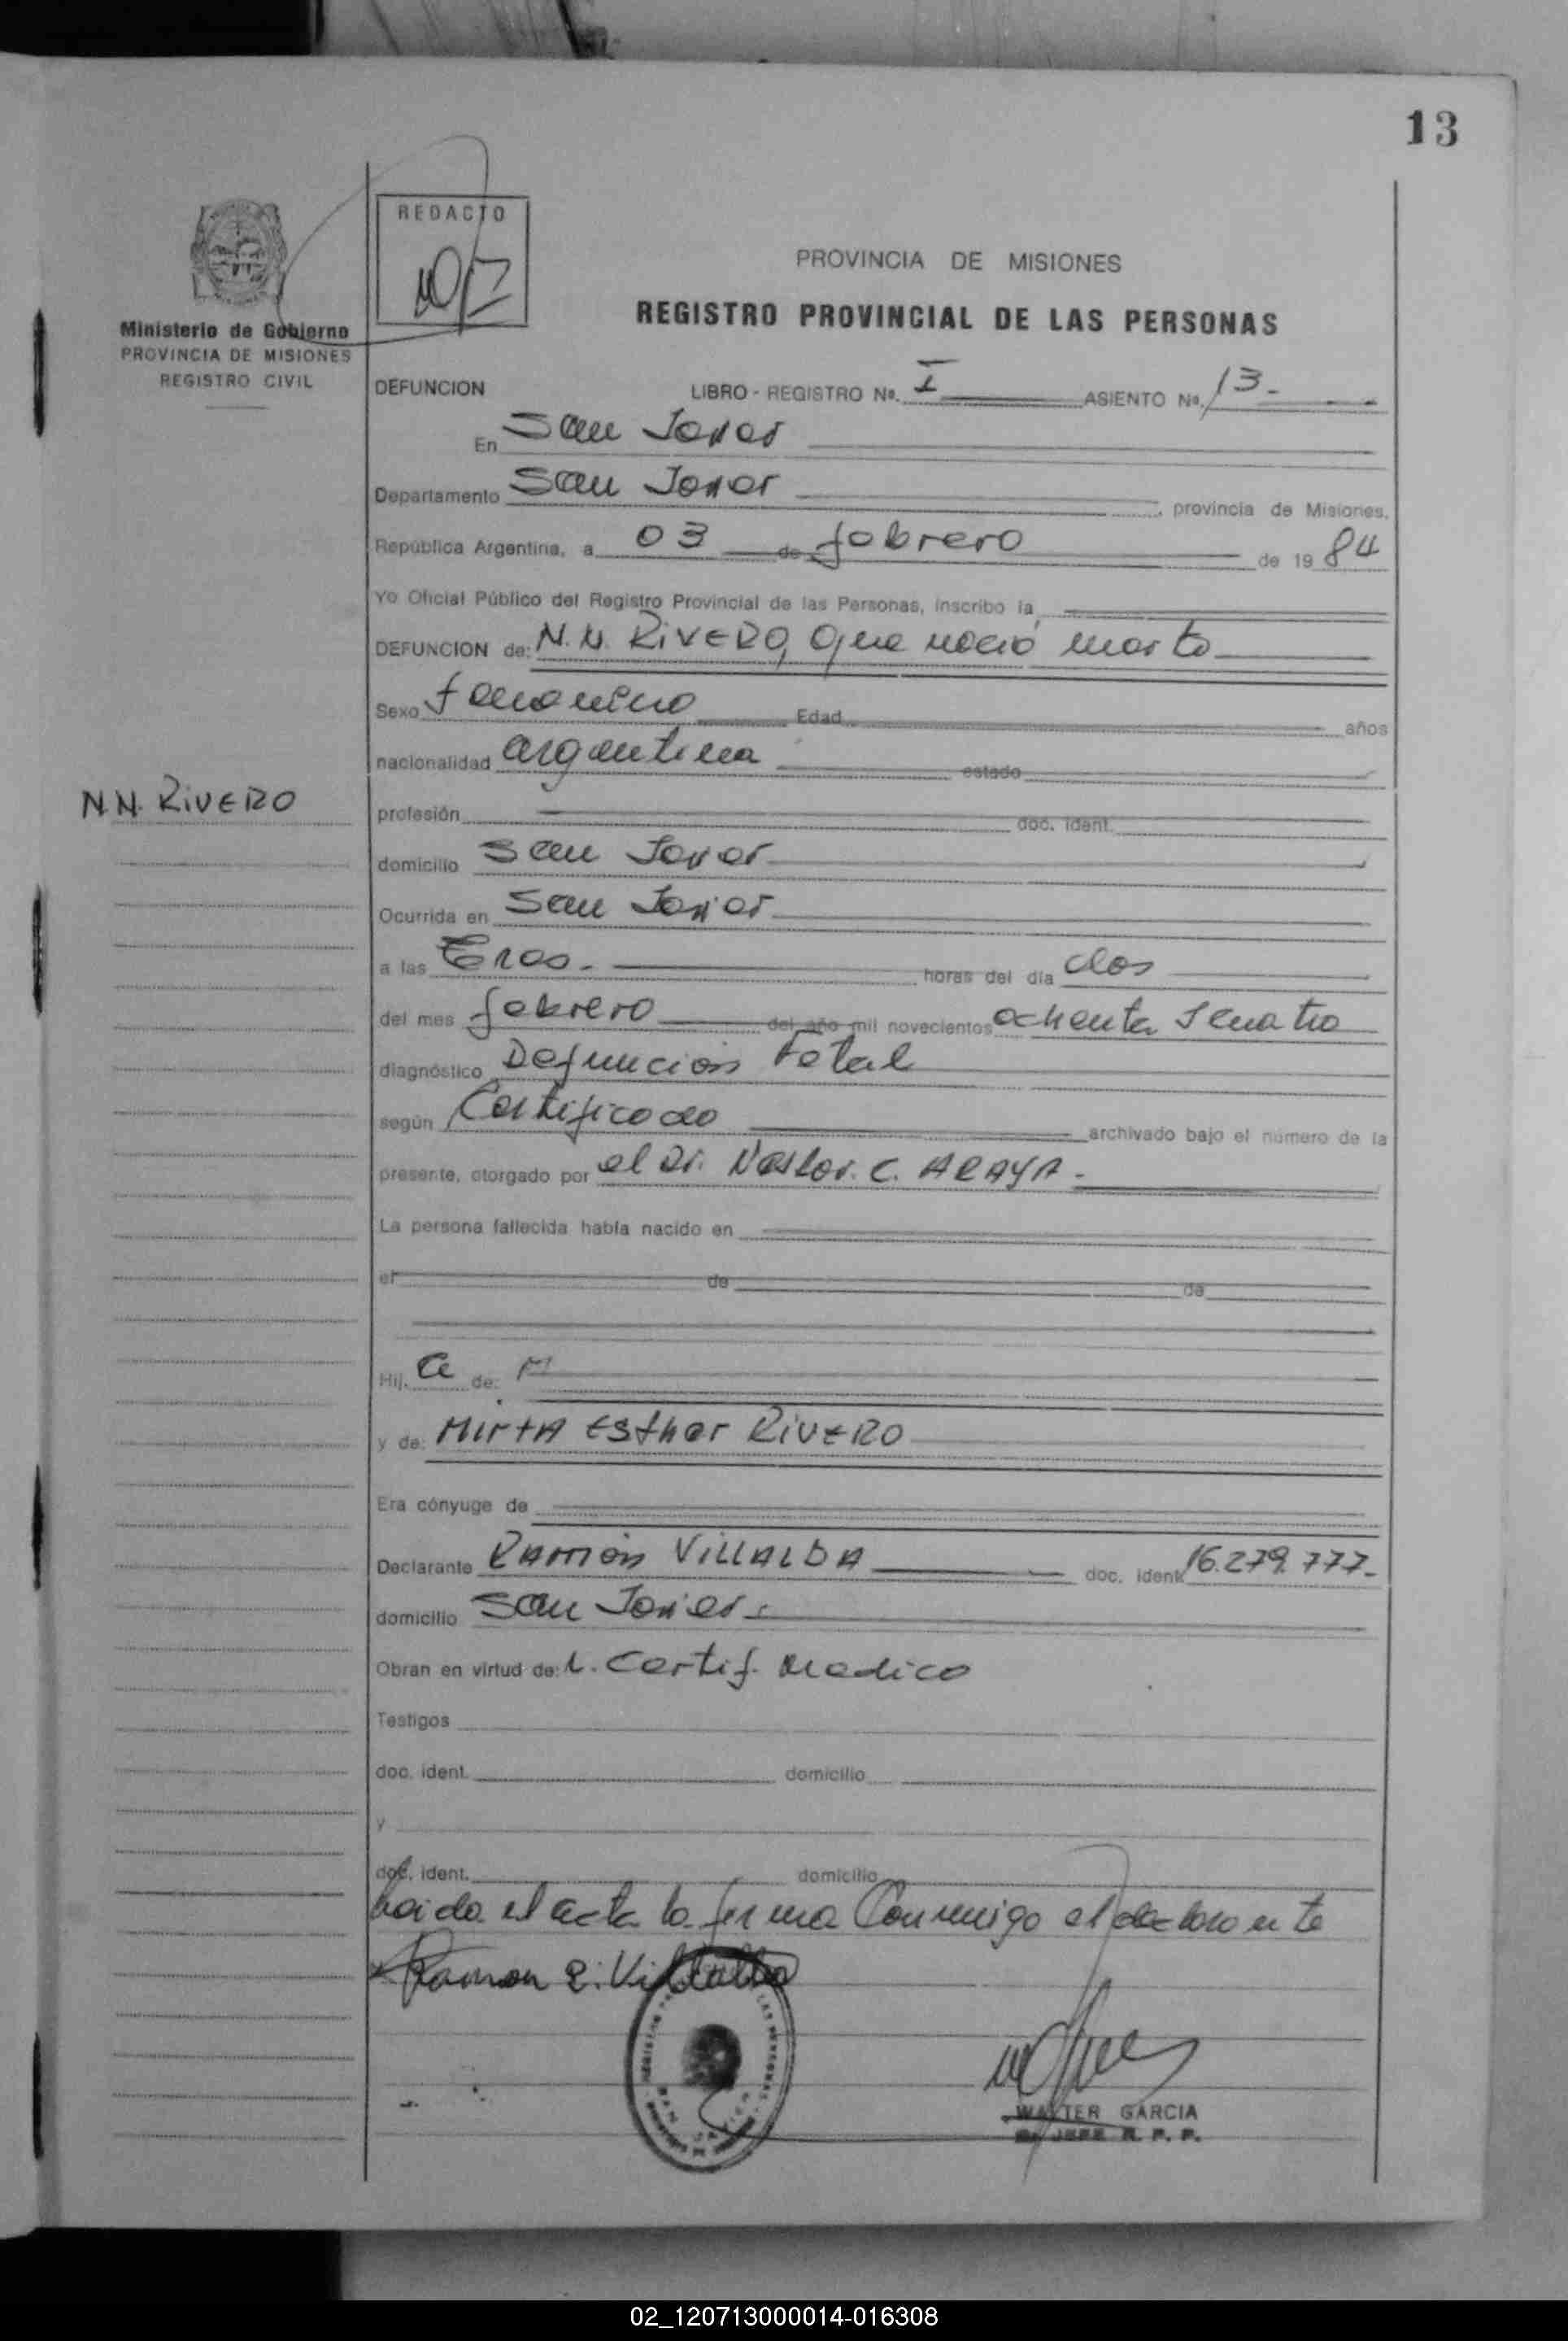 13
REDACTO
PROVINCIA DE MISIONES
REGISTRO PROVINCIAL DE LAS PERSONAS
Ministerio de Gobierno
PROVINCIA DE MISIONES
REGISTRO CIVIL
DEFUNCION LIBRO - REGISTRO No. I ASIENTO No. 13.-
En San Javier
Departamento San Javier, provincia de Misiones,
República Argentina, a 03 de febrero de 19 84
Yo Oficial Público del Registro Provincial de las Personas, inscribo la
DEFUNCION de: N.N. RIVERO, que nació muerto
Sexo femenino Edad años
nacionalidad argentina estado
N.N. RIVERO
profesión doc. ident.
domicilio San Javier
Ocurrida en San Javier
a las tres.- horas del día dos
del mes febrero del año mil novecientos ochenta y cuatro
diagnóstico Defunción Fetal
según Certificado archivado bajo el número de la
presente, otorgado por el Dr. Nestor. C. ARAYA.-
La persona fallecida había nacido en
el de de
Hij. a de:
y de: MIRTA Esther RIVERO
Era cónyuge de
Declarante RAMÓN VILLALBA doc. ident. 16.279.777.-
domicilio San Javier.-
Obran en virtud de: 1. Certif. Medico
Testigos
doc. ident. domicilio
y
doc. ident. domicilio
Leida el acta la firma Conmigo el declarante
Ramon E. Villalba
WALTER GARCIA
JEFE R. P. P.
02_120713000014-016308